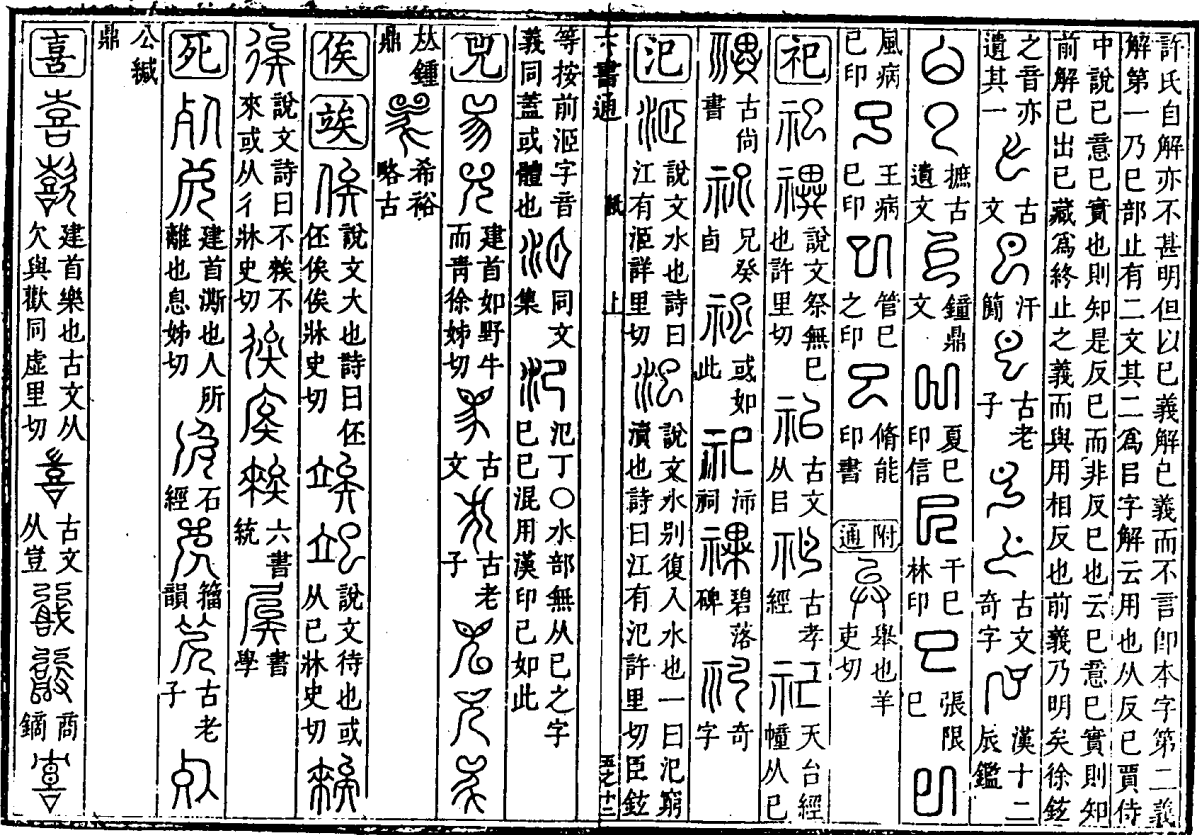 許氏自解亦不甚明但以巳義解巳義而不言卽本字第二義
解第一乃巳部止有二文其二爲㠯字解云用也从反巳賈侍
中說巳意巳實也則知是反巳而非反巳也云巳意巳實則知
前解巳出巳藏爲終止之義而與用相反也前義乃明矣徐鉉
之音亦遺其一 古文 汗簡 古老子 古文奇字 漢十二辰鑑
摭古遺文 鐘鼎文 夏巳印信 干巳林印 張限巳
風病巳印 王病巳印 管巳之印 脩能印書 附通 舉也羊吏切
祀 說文祭無巳也許里切 古文从㠯 古孝經 天台經幢从巳
古尚書 兄癸卣 或如此 沛祠 碧落碑 奇字
汜 說文水也詩曰江有洍詳里切 說文水別復入水也一曰汜窮瀆也詩曰江有汜許里切臣鉉
六書通 紙 上 五之十三
等按前洍字音義同蓋或體也 同文集 汜丁○水部無从巳之字巳巳混用漢印巳如此
兕 建首如野牛而青徐姊切 古文 古老子
鍾鼎 希裕略古
俟 竢 說文大也詩曰伾伾俟俟牀史切 說文待也或从巳牀史切
說文詩曰不䅘不來或从彳牀史切 六書統 書學
死 建首澌也人所離也息姊切 石經 籀韻 古老子
公緘鼎
喜 建首樂也古文从欠與歡同虛里切 古文从豈 商鏑